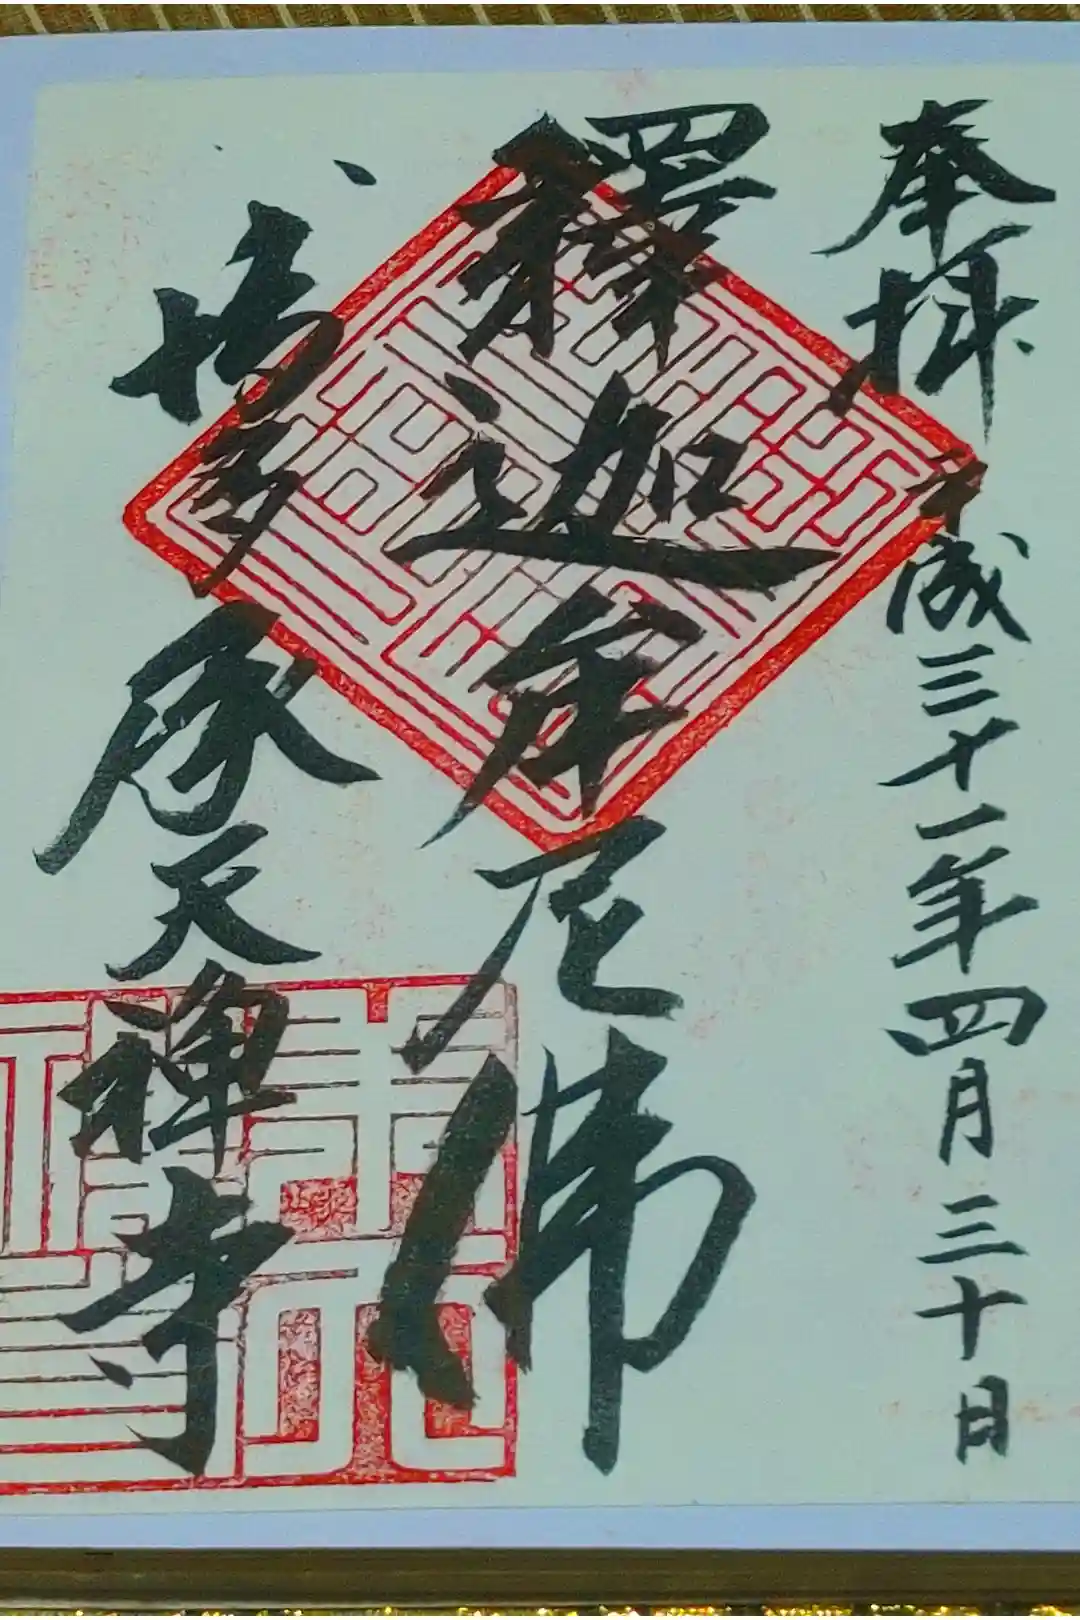 奉拝
平成三十一年四月三十日
釋迦牟尼佛
博多承天禅寺